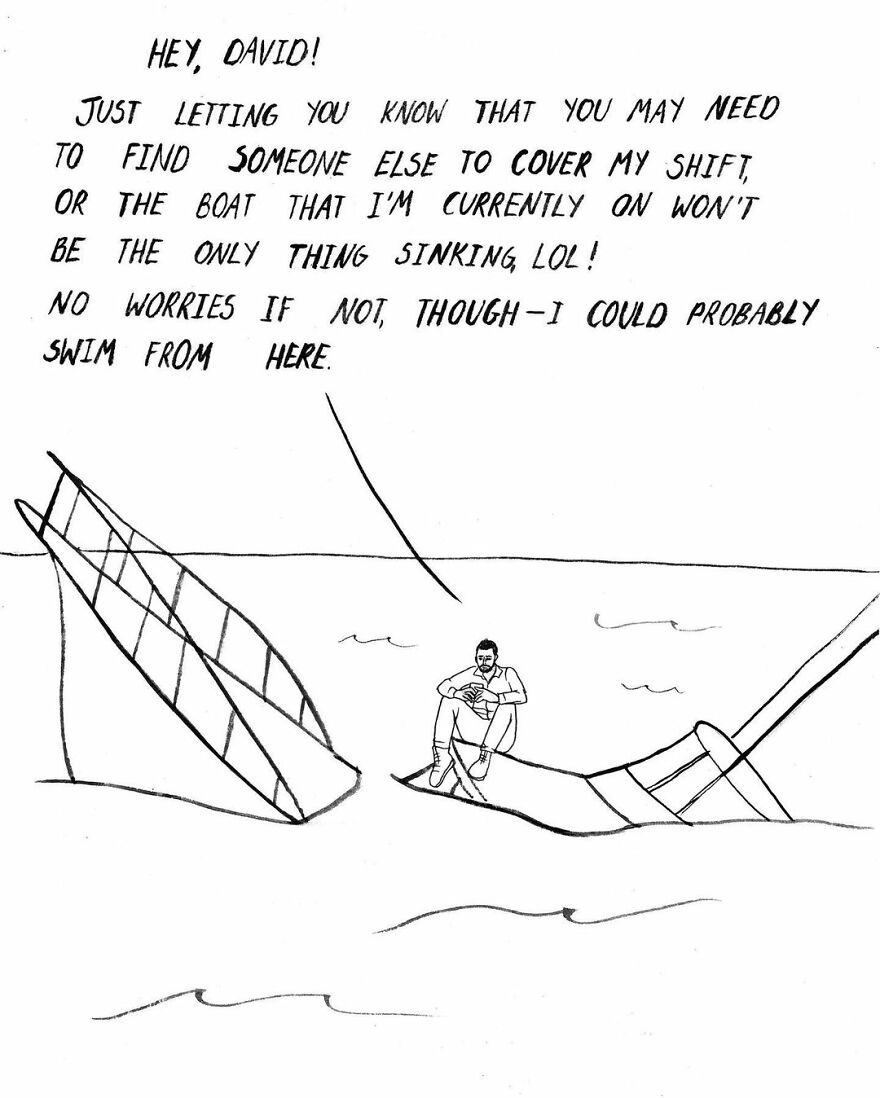 HEY, DAVID!
JUST LETTING YOU KNOW THAT YOU MAY NEED
TO FIND SOMEONE ELSE TO COVER MY SHIFT,
OR THE BOAT THAT I'M CURRENTLY ON WON'T
BE THE ONLY THING SINKING, LOL!
NO WORRIES IF NOT, THOUGH–I COULD PROBABLY
SWIM FROM HERE.